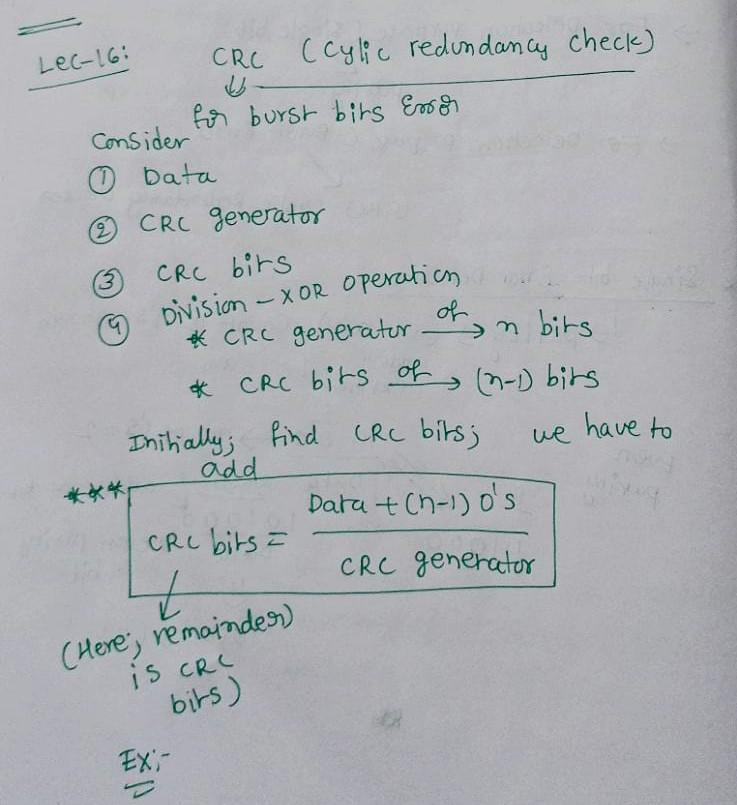 Lec-16: CRC (Cylic redundancy check)
for burst bits Error
Consider
① Data
② CRC generator
③ CRC bits
④ Division - XOR operation
* CRC generator of → n bits
* CRC bits of → (n-1) bits
Initially; find CRC bits; we have to
add
*** CRC bits = Data + (n-1) 0's / CRC generator
(Here; remainder)
is CRC
bits)
Ex:-